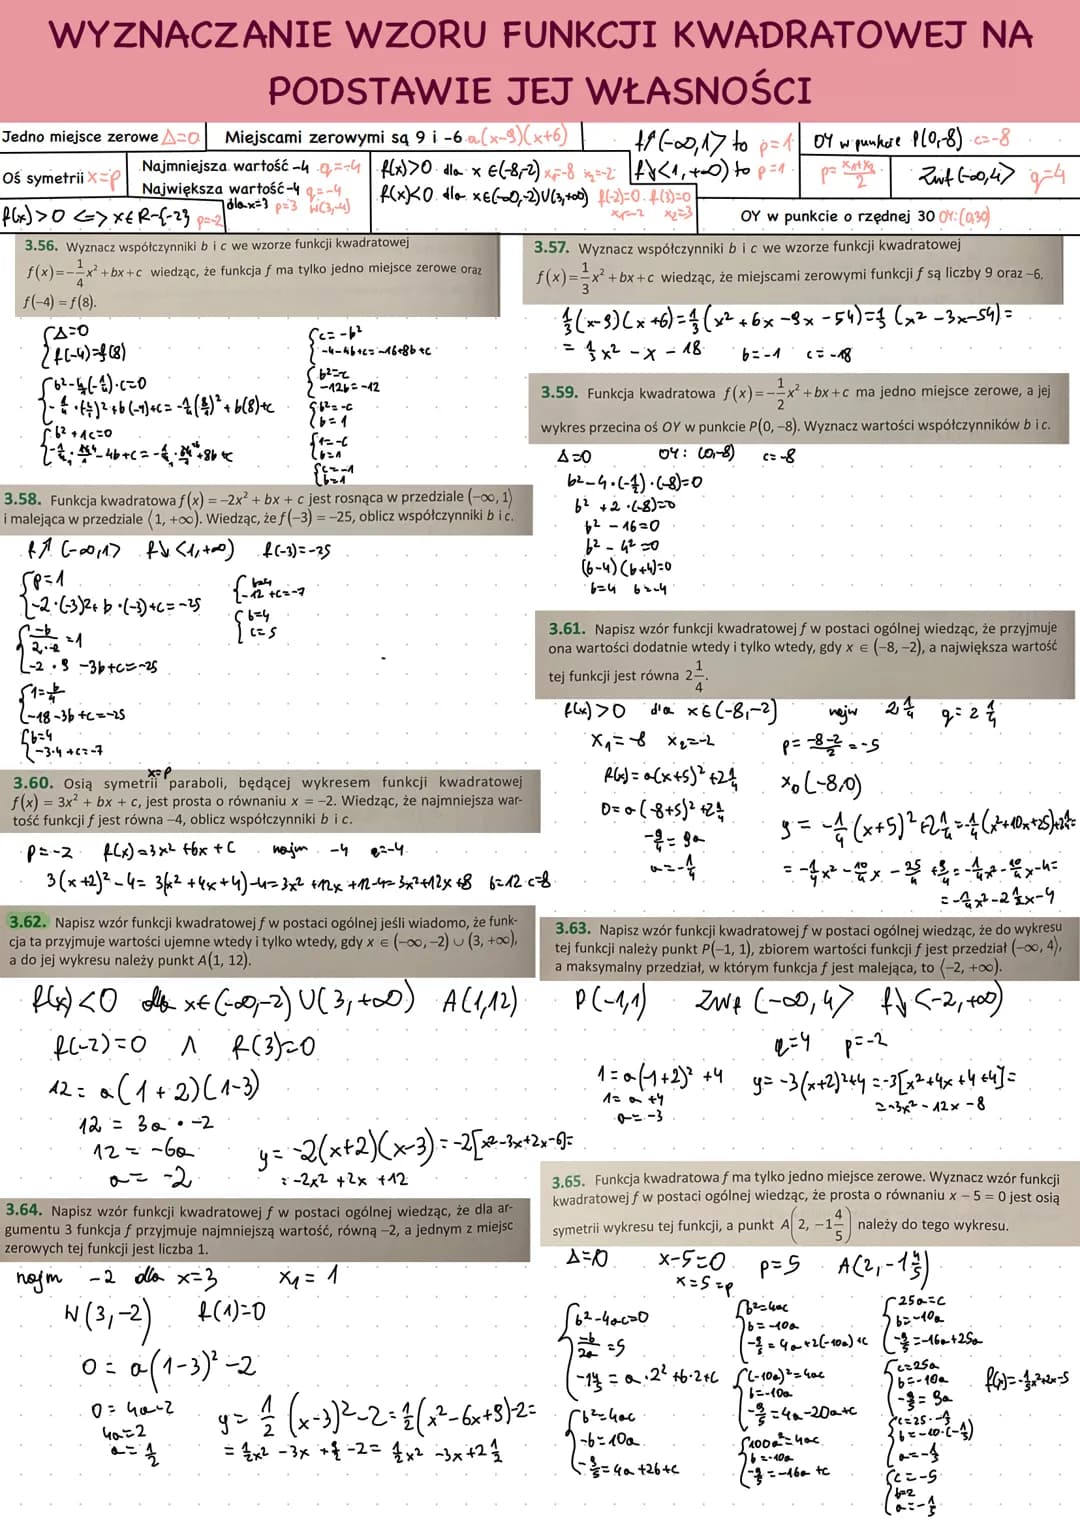 WYZNACZANIE WZORU FUNKCJI KWADRATOWEJ NA
PODSTAWIE JEJ WŁASNOŚCI
Jedno miejsce zerowe Δ=0
Miejscami zerowymi są 9 i -6 a(x-9)(x+6)
f↗(-∞,1> to p=1
f↘<1,+∞) to p=1
OY w punkcie P(0,-8) c=-8
Oś symetrii x=p
Najmniejsza wartość -4 q=-4
Największa wartość -4 q=-4
dla x=3 p=3 W(3,-4)
f(x)>0 dla x∈(-8,-2) x₁=-8 x₂=-2
f(x)<0 dla x∈(-∞,-2)∪(3,+∞) f(-2)=0 f(3)=0
x₁=-2 x₂=3
p= x₁+x₂/2
Zwf (-∞,4> q=4
f(x)>0 <=> x∈R-{-2} p=-2
OY w punkcie o rzędnej 30 OY:(0,30)
3.56. Wyznacz współczynniki b i c we wzorze funkcji kwadratowej
f(x)=-1/4x²+bx+c wiedząc, że funkcja f ma tylko jedno miejsce zerowe oraz
f(−4) = f(8).
{Δ=0
f(-4)=f(8)
{b²-4(-1/4)·c=0
{b²+1c=0
{c=-b²
-4-4b+c=-16+8b+c
{b²=-c
-12b=-12
{b²=-c
b=1
{1=-c
b=1
{c=-1
b=1
3.57. Wyznacz współczynniki b i c we wzorze funkcji kwadratowej
f(x)=1/3x²+bx+c wiedząc, że miejscami zerowymi funkcji f są liczby 9 oraz −6.
1/3(x-9)(x+6)=1/3(x²+6x-9x-54)=1/3(x²-3x-54)=
= 1/3x²-x-18 b=-1 c=-18
3.59. Funkcja kwadratowa f(x)=-1/2x²+bx+c ma jedno miejsce zerowe, a jej
wykres przecina oś OY w punkcie P(0, −8). Wyznacz wartości współczynników b i c.
Δ=0 OY: (0,-8) c=-8
b²-4·(-1/2)·(-8)=0
b²+2·(-8)=0
b²-16=0
b²-4²=0
(b-4)(b+4)=0
b=4 b=-4
3.58. Funkcja kwadratowa f(x) = −2x² + bx + c jest rosnąca w przedziale (−∞, 1⟩
i malejąca w przedziale ⟨1, +∞). Wiedząc, że f(−3) = −25, oblicz współczynniki b i c.
f↗(-∞,1> f↘<1,+∞) f(-3)=-25
{p=1
-2·(-3)²+b·(-3)+c=-25
{-b/2·-2=1
-2·9-3b+c=-25
{1=b/4
-18-3b+c=-25
{b=4
-3·4+c=-7
{b=4
-12+c=-7
{b=4
c=5
3.61. Napisz wzór funkcji kwadratowej f w postaci ogólnej wiedząc, że przyjmuje
ona wartości dodatnie wtedy i tylko wtedy, gdy x ∈ (−8, −2), a największa wartość
tej funkcji jest równa 2 1/4.
f(x)>0 dla x∈(-8,-2) najw 2 1/4 q=2 1/4
x₁=-8 x₂=-2 p= -8-2/2 =-5
f(x)=a(x+5)²+2 1/4 x₀(-8,0)
0=a(-8+5)²+2 1/4
-9/4=9a
a=-1/4
y=-1/4(x+5)²+2 1/4=-1/4(x²+10x+25)+2 1/4=
=-1/4x²-10/4x-25/4+9/4=-1/4x²-10/4x-4=
=-1/4x²-2 1/2x-4
3.60. Osią symetrii x=p paraboli, będącej wykresem funkcji kwadratowej
f(x) = 3x² + bx + c, jest prosta o równaniu x = −2. Wiedząc, że najmniejsza war-
tość funkcji f jest równa −4, oblicz współczynniki b i c.
p=-2 f(x)=3x²+bx+c najm -4 q=-4
3(x+2)²-4=3(x²+4x+4)-4=3x²+12x+12-4=3x²+12x+8 b=12 c=8
3.62. Napisz wzór funkcji kwadratowej f w postaci ogólnej jeśli wiadomo, że funk-
cja ta przyjmuje wartości ujemne wtedy i tylko wtedy, gdy x ∈ (−∞, −2) ∪ (3, +∞),
a do jej wykresu należy punkt A(1, 12).
f(x)<0 dla x∈(-∞,-2)∪(3,+∞) A(1,12)
f(-2)=0 ∧ f(3)=0
12=a(1+2)(1-3)
12=3a·-2
12=-6a
a=-2
y=-2(x+2)(x-3)=-2[x²-3x+2x-6]=
=-2x²+2x+12
3.63. Napisz wzór funkcji kwadratowej f w postaci ogólnej wiedząc, że do wykresu
tej funkcji należy punkt P(−1, 1), zbiorem wartości funkcji f jest przedział (−∞, 4⟩,
a maksymalny przedział, w którym funkcja f jest malejąca, to ⟨−2, +∞).
P(-1,1) ZWf (-∞,4> f↘<-2,+∞)
q=4 p=-2
1=a(-1+2)²+4
1=a+4
a=-3
y=-3(x+2)²+4=-3[x²+4x+4+4]=
=-3x²-12x-8
3.64. Napisz wzór funkcji kwadratowej f w postaci ogólnej wiedząc, że dla ar-
gumentu 3 funkcja f przyjmuje najmniejszą wartość, równą −2, a jednym z miejsc
zerowych tej funkcji jest liczba 1.
najm -2 dla x=3 x₁=1
W(3,-2) f(1)=0
0=a(1-3)²-2
0=4a-2
4a=2
a=1/2
y=1/2(x-3)²-2=1/2(x²-6x+9)-2=
=1/2x²-3x+9/2-2=1/2x²-3x+2 1/2
3.65. Funkcja kwadratowa f ma tylko jedno miejsce zerowe. Wyznacz wzór funkcji
kwadratowej f w postaci ogólnej wiedząc, że prosta o równaniu x − 5 = 0 jest osią
symetrii wykresu tej funkcji, a punkt A(2, −1 4/5) należy do tego wykresu.
Δ=0 x-5=0 p=5 A(2,-1 4/5)
x=5=p
{b²-4ac=0
-b/2a=5
-1 4/5=a·2²+b·2+c
{b²=4ac
-b=10a
-9/5=4a+2b+c
{b²=4ac
b=-10a
-9/5=4a+2(-10a)+c
{(-10a)²=4ac
b=-10a
-9/5=4a-20a+c
{100a²=4ac
b=-10a
-9/5=-16a+c
{25a=c
b=-10a
-9/5=-16a+25a
{c=25a
b=-10a
-9/5=9a
{c=25·-1/5
b=-10·(-1/5)
a=-1/5
{c=-5
b=2
a=-1/5
f(x)=-1/5x²+2x-5